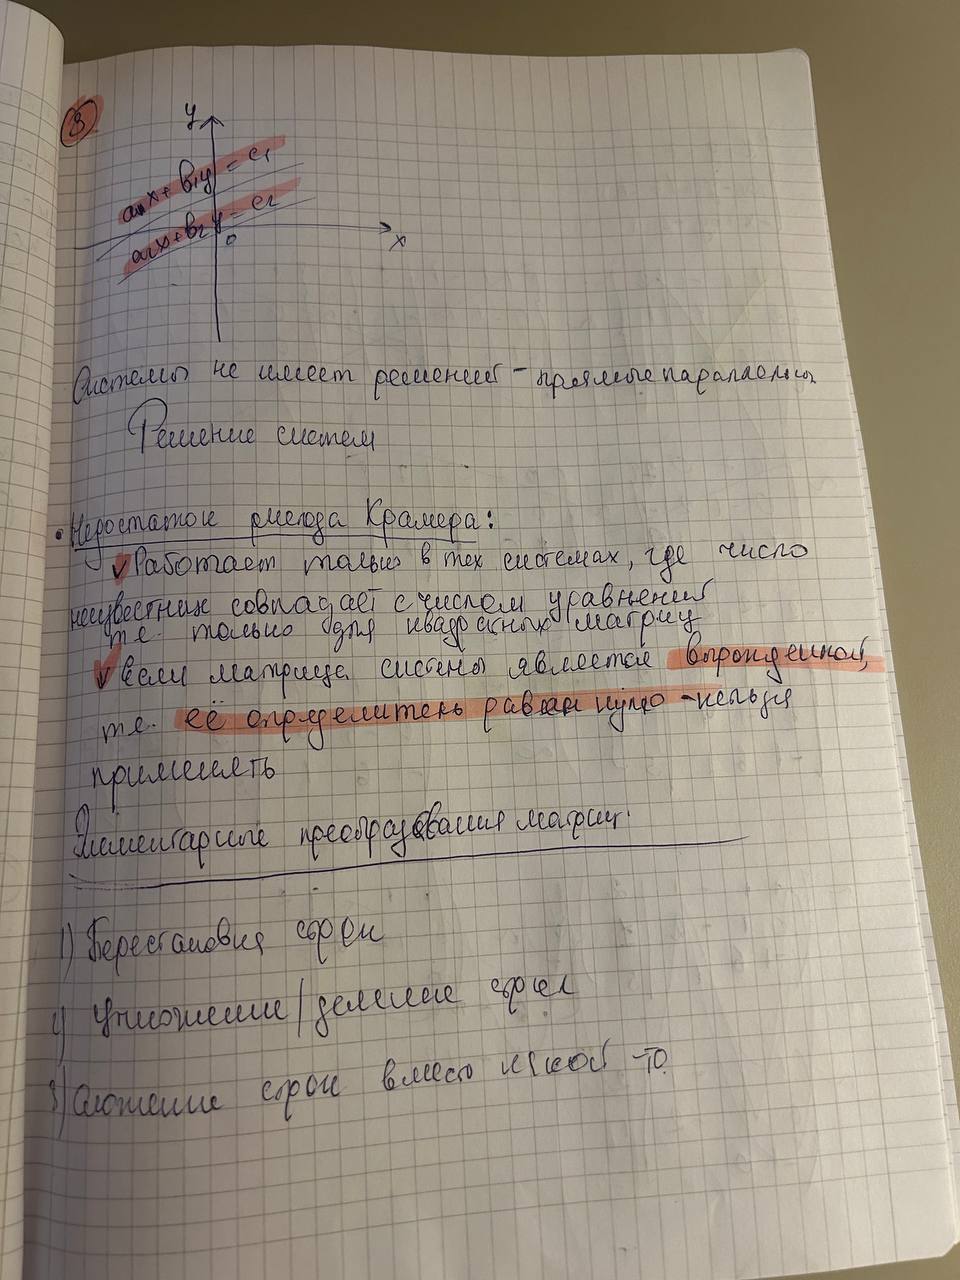 3
y
a₁x + b₁y = c₁
a₂x + b₂y = c₂
0
x
Системы не имеет решений - прямые параллельны
Решение систем
• Недостаток метода Крамера:
✓ Работает только в тех системах, где число
неизвестных совпадает с числом уравнений
т.е. только для квадратных матриц
✓ Если матрица системы является вырожденной,
т.е. её определитель равен нулю - нельзя
применять
Элементарные преобразования матриц.
1) Перестановка строк
2) Умножение/деление строк
3) Сложение строк вместо какой-то